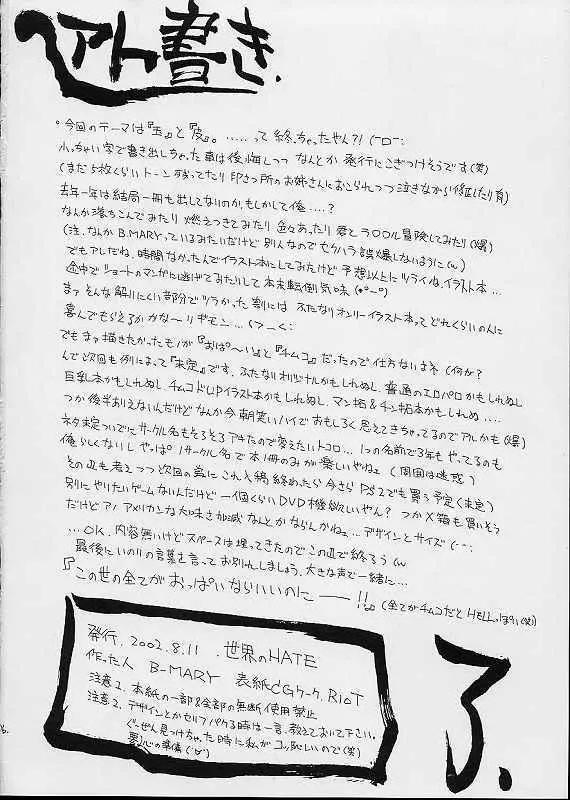 アト書き.
°今回のテーマは『玉』と『皮』。……って終っちゃったやん?! (ーロー:
小っちゃい字で書き出しちゃった事は後悔しつつ なんとか 発行にこぎつけそうです(笑)
(まだ5枚くらいトーン残ってたり 印さつ所のお姉さんにおこられつつ泣きながら修正したり有)
去年一年は結局一冊も出してないのか、もしかして俺….?
なんか落ちこんでみたり 燃えつきてみたり 色々あったり 愛と〇〇〇ル冒険してみたり(爆)
(注、なんか B.MARYっているみたいだけど 別人なのでセクハラ誤爆しないように(w)
でもアレだね、時間なかったんでイラスト本にしてみたけど 予想以上にツライね、イラスト本…
途中でショートのマンガに逃げてみたりして 本末転倒気味(°ー°)
まァ そんな解りにくい部分でツラかった割には ふたなりオンリーイラスト本って どれくらいの人に
喜んでもらえるかかな〜リギモン…
でもまァ描きたかったモノが『おぱ〜い』と『チムコ』だったので 仕方ないよネ(何が?
んで次回も例によって『未定』です。ふたなりオリジナルかもしれぬし、普通のエロパロかもしれぬし
巨乳本かもしれぬし チムコドUPイラスト本かもしれぬし、マン拓&チン拓本かもしれぬ….
つか後半ありえないんだけど なんか今朝笑いハイでおもしろく思えてきちゃってるのでアルかも(爆)
ネタ未定ついでにサークル名もそろそろアキたので変えたいトコロ… 1つの名前で3年もやってるのも
俺らしくないし やっぱ1サークル名で本1冊のみが楽しいやねェ (周囲は迷惑)
その辺も考えつつ次回の為に これ入稿終わったら今さら PS2でも買う予定(未定)
別にやりたいゲームないんだけど 一個くらいDVD機欲しいやん? つか X箱も買いそう
だけどアノ アメリカンな大味さ加減なんとかならんかねェ…デザインとサイズ(ーー:
…OK、内容無いけど スペースは埋ってきたので この辺で終ろう(w
最後にいのりの言葉を言って お別れしましょう、大きな声で一緒に…
『この世の全てがおっぱいならいいのに ーー!!』 (全てがチムコだとHELLっぽい(笑)
発行. 2002.8.11 .世界のHATE
作った人 B-MARY 表紙CGワーク, RIOT
注意1. 本紙の一部&全部の無断使用禁止
注意2. デザインとかセルフパクる時は一言、教えておいて下さい。
ぐーぜん見つけちゃった時に私がコッ恥しいので(笑)
了.